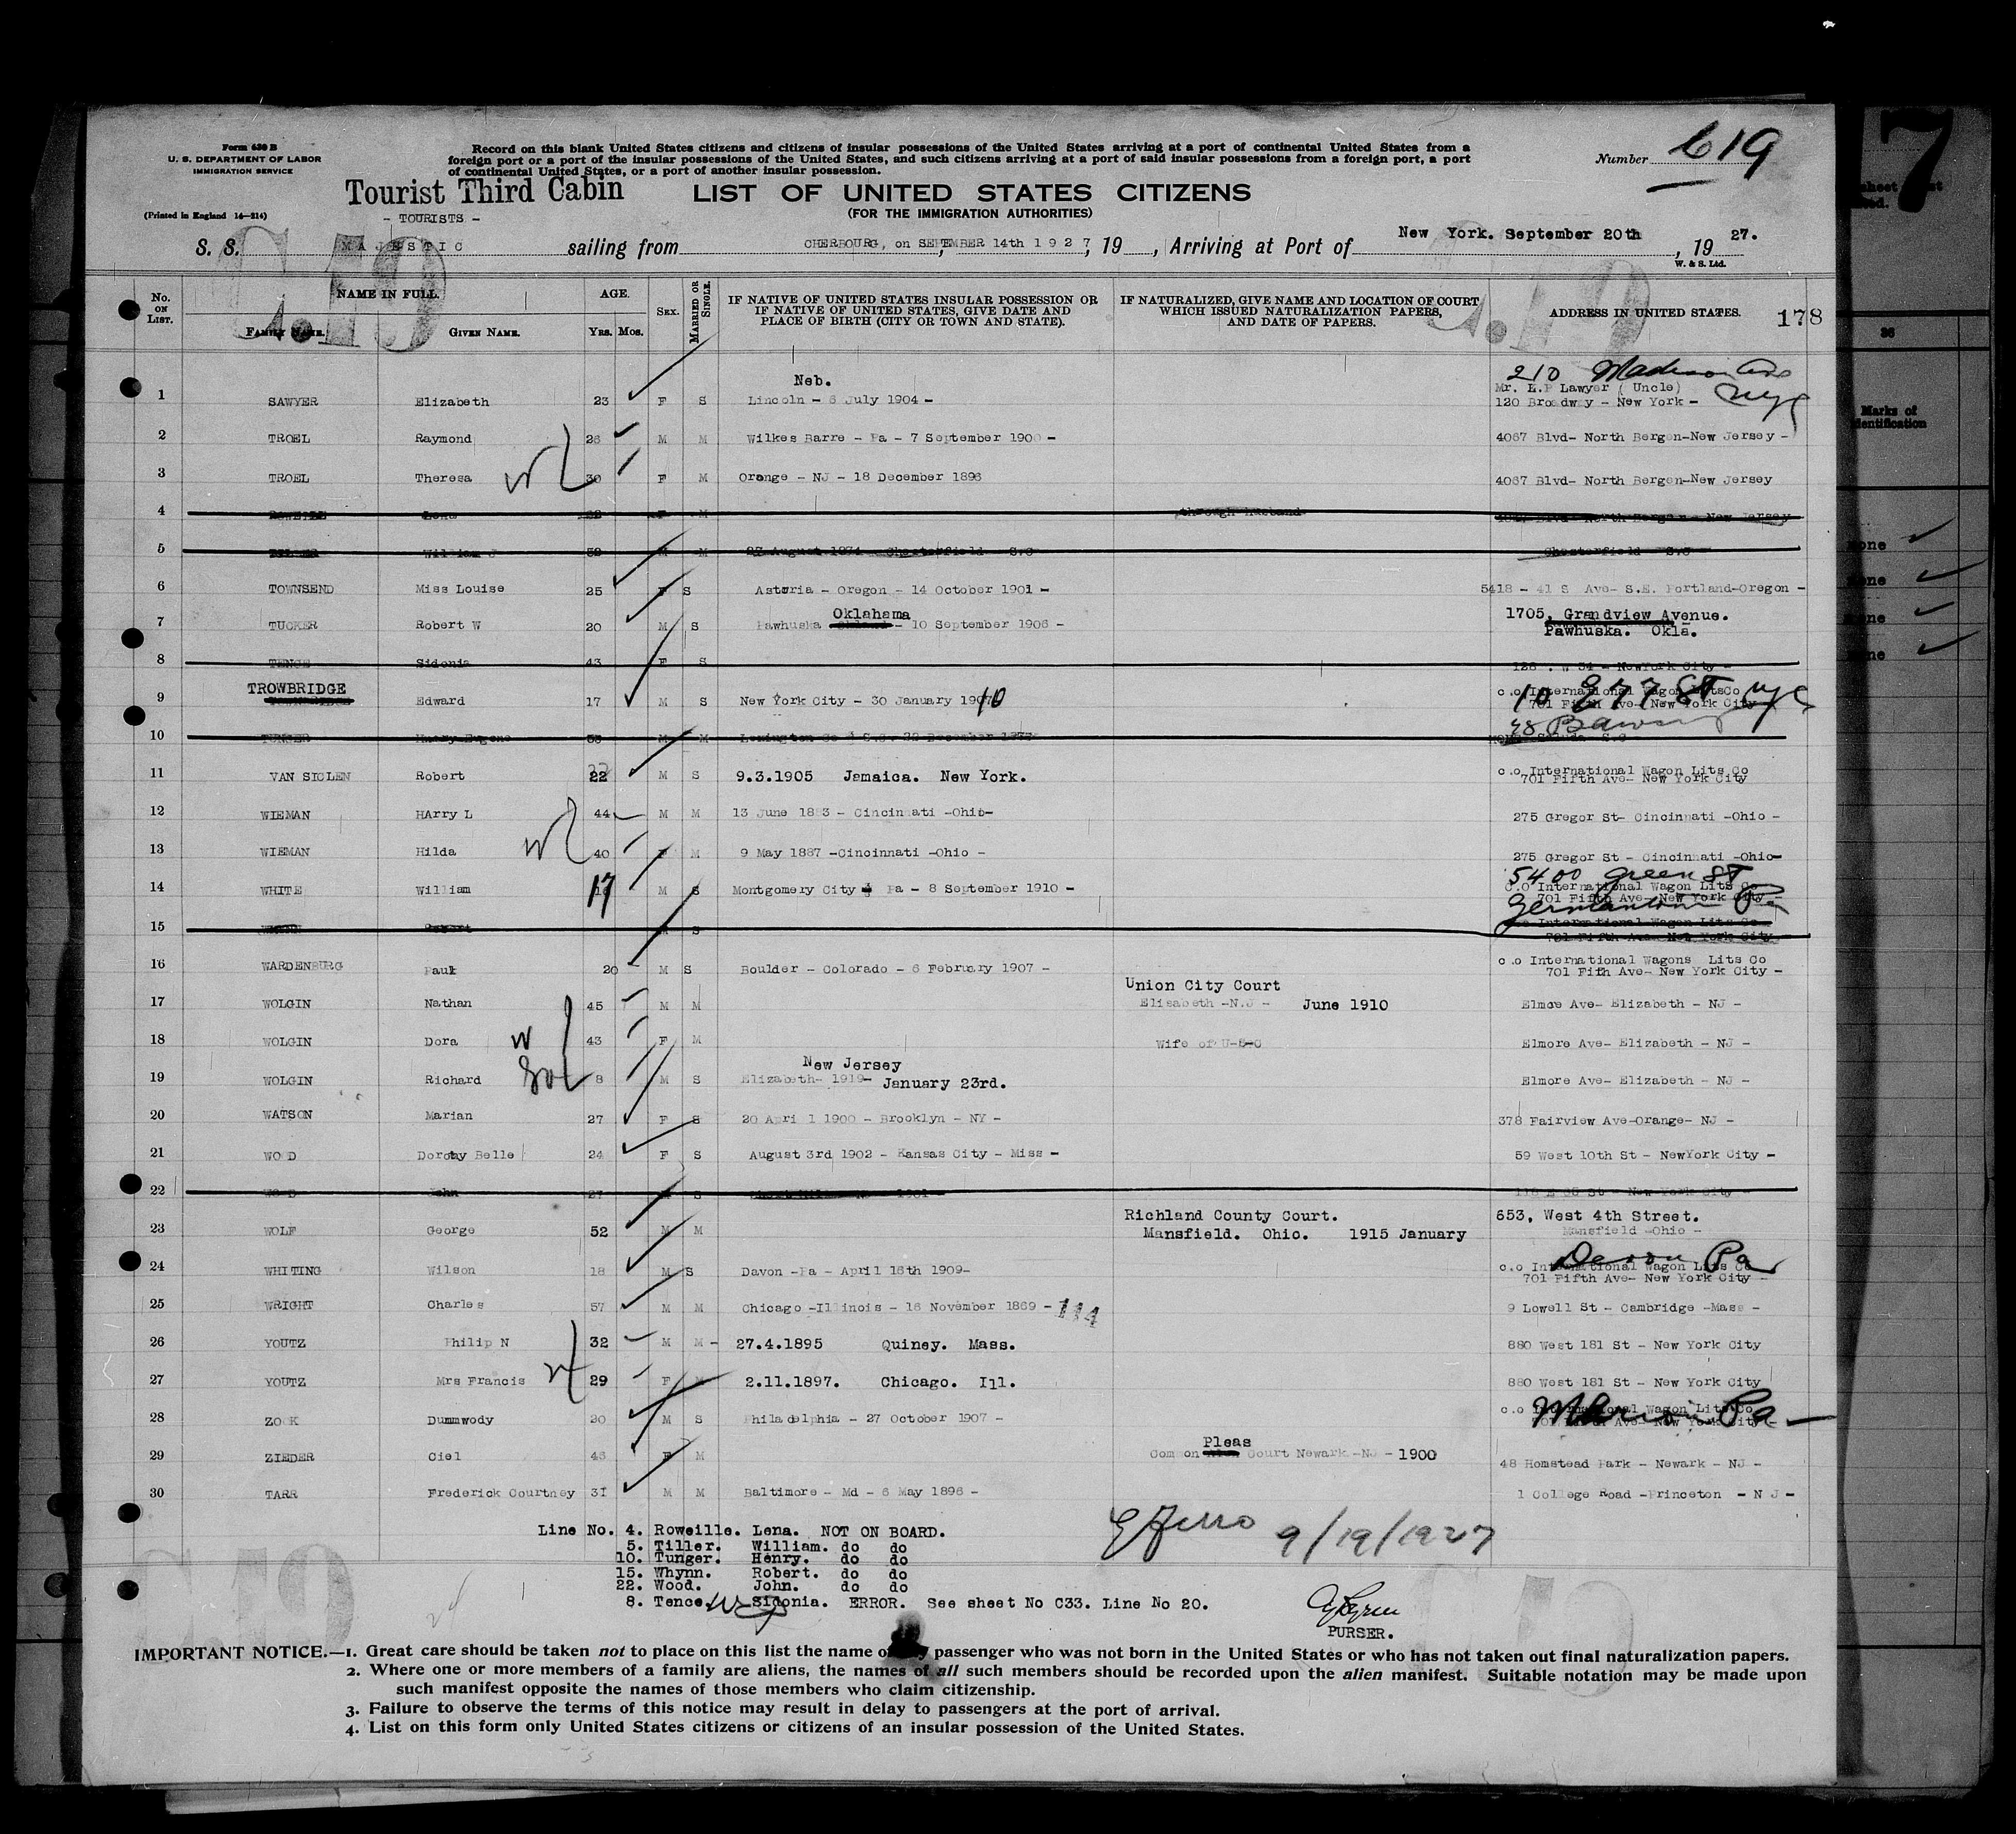 Form 630 B
U. S. DEPARTMENT OF LABOR
IMMIGRATION SERVICE
(Printed in England 14—214)
Record on this blank United States citizens and citizens of insular possessions of the United States arriving at a port of continental United States from a
foreign port or a port of the insular possessions of the United States, and such citizens arriving at a port of said insular possessions from a foreign port, a port
of continental United States, or a port of another insular possession.
Number 619
Tourist Third Cabin LIST OF UNITED STATES CITIZENS
- TOURISTS - (FOR THE IMMIGRATION AUTHORITIES)
S. S. MAJESTIC sailing from CHERBOURG, on SEPTEMBER 14th 1927, 19 , Arriving at Port of New York. September 20th , 19 27.
W. & S. Ltd.
No. ON LIST. NAME IN FULL. FAMILY NAME. GIVEN NAME. AGE. YRS. MOS. SEX. MARRIED OR SINGLE. IF NATIVE OF UNITED STATES INSULAR POSSESSION OR IF NATIVE OF UNITED STATES, GIVE DATE AND PLACE OF BIRTH (CITY OR TOWN AND STATE). IF NATURALIZED, GIVE NAME AND LOCATION OF COURT WHICH ISSUED NATURALIZATION PAPERS, AND DATE OF PAPERS. ADDRESS IN UNITED STATES. 178
Neb. 210 Madison Ave
1 SAWYER Elizabeth 23 F S Lincoln - 6 July 1904 - Mr. E.P Lawyer (Uncle) 120 Broadway - New York - NYC
2 TROEL Raymond 26 M M Wilkes Barre - Pa - 7 September 1900 - 4067 Blvd- North Bergen-New Jersey -
3 TROEL Theresa 30 F M Orange - NJ - 18 December 1896 4067 Blvd- North Bergen-New Jersey
4 Lena F M through husband 4067 Blvd- North Bergen - New Jersey
5 William J M M 27 August 1874 - Chesterfield - S.C Chesterfield - S.C
6 TOWNSEND Miss Louise 25 F S Astoria - Oregon - 14 October 1901 - 5418 - 41 S Ave- S.E. Portland-Oregon -
7 TUCKER Robert W 20 M S Pawhuska Oklahama - 10 September 1906 - 1705, Grandview Avenue. Pawhuska. Okla.
8 TENCE Sidonia 43 F S 54 - NewYork City -
9 TROWBRIDGE Edward 17 M S New York City - 30 January 1907 10 c.o International Wagon LitsCo 701 Fifth Ave- New York City 10 E 77 St NYC
10 TUNGER Henry Eugene M M
11 VAN SICLEN Robert 22 M S 9.3.1905 Jamaica. New York. c.o International Wagon Lits Co 701 Fifth Ave- New York City
12 WIEMAN HArry L 44 M M 13 June 1883 - Cincinnati -Ohio- 275 Gregor St- Cincinnati -Ohio -
13 WIEMAN Hilda 40 F M 9 May 1887 -Cincinnati -Ohio - 275 Gregor St - Cincinnati -Ohio-
14 WHITE William 17 M S Montgomery City Pa - 8 September 1910 - C.O International Wagon Lits Co 701 Fifth Ave- New York City 5400 Green St Germantown Pa
15 Robert S International Wagon Lits Co 701 Fifth Ave- New York City
16 WARDENBURG Paul 20 M S Boulder - Colorado - 6 February 1907 - c.o International Wagons Lits Co 701 Fifh Ave- New York City -
17 WOLGIN Nathan 45 M M Union City Court Elisabeth -N.J - June 1910 Elmore Ave- Elizabeth - NJ -
18 WOLGIN Dora 43 F M Wife of U-S-C Elmore Ave- Elizabeth - NJ -
19 WOLGIN Richard 8 M S New Jersey Elizabeth- 1919- January 23rd. Elmore Ave- Elizabeth - NJ -
20 WATSON Marian 27 F S 20 April 1900 - Brooklyn - NY - 378 Fairview Ave-Orange- NJ -
21 WOOD Dorothy Belle 24 F S August 3rd 1902 - Kansas City - Miss - 59 West 10th St - NewYork City -
22 John 27 S New York City
23 WOLF George 52 M M Richland County Court. Mansfield. Ohio. 1915 January 653, West 4th Street. Mansfield -Ohio -
24 WHITING Wilson 18 M S Davon -Pa - April 16th 1909- c.o International Wagon Lits Co 701 Fifth Ave- New York City - Devon Pa
25 WRIGHT Charles 57 M M Chicago -Illinois - 16 November 1869 - 114 9 Lowell St - Cambridge -Mass -
26 YOUTZ Philip N 32 M M - 27.4.1895 Quiney. Mass. 880 West 181 St - New York City
27 YOUTZ Mrs Francis 29 F M 2.11.1897. Chicago. Ill. 880 West 181 St - New York City
28 ZOOK Dummwody 20 M S Philadelphia - 27 October 1907 - c.o International Wagon Lits Co 701 Fifth Ave- New York City - Merion Pa -
29 ZIEDER Ciel F M Common Pleas Court Newark -NJ - 1900 48 Homstead Park - Newark - NJ -
30 TARR Frederick Courtney 31 M M Baltimore - Md - 6 May 1896 - 1 College Road -Princeton - N J -
Line No. 4. Roweille. Lena. NOT ON BOARD.
5. Tiller. William. do do
10. Tunger. Henry. do do
15. Whynn. Robert. do do
22. Wood. John. do do
8. Tence. Sidonia. ERROR. See sheet No C33. Line No 20.
9/19/1927
PURSER.
IMPORTANT NOTICE.—1. Great care should be taken not to place on this list the name of any passenger who was not born in the United States or who has not taken out final naturalization papers.
2. Where one or more members of a family are aliens, the names of all such members should be recorded upon the alien manifest. Suitable notation may be made upon
such manifest opposite the names of those members who claim citizenship.
3. Failure to observe the terms of this notice may result in delay to passengers at the port of arrival.
4. List on this form only United States citizens or citizens of an insular possession of the United States.
7
26
Marks of
Identification
None
None
None
None